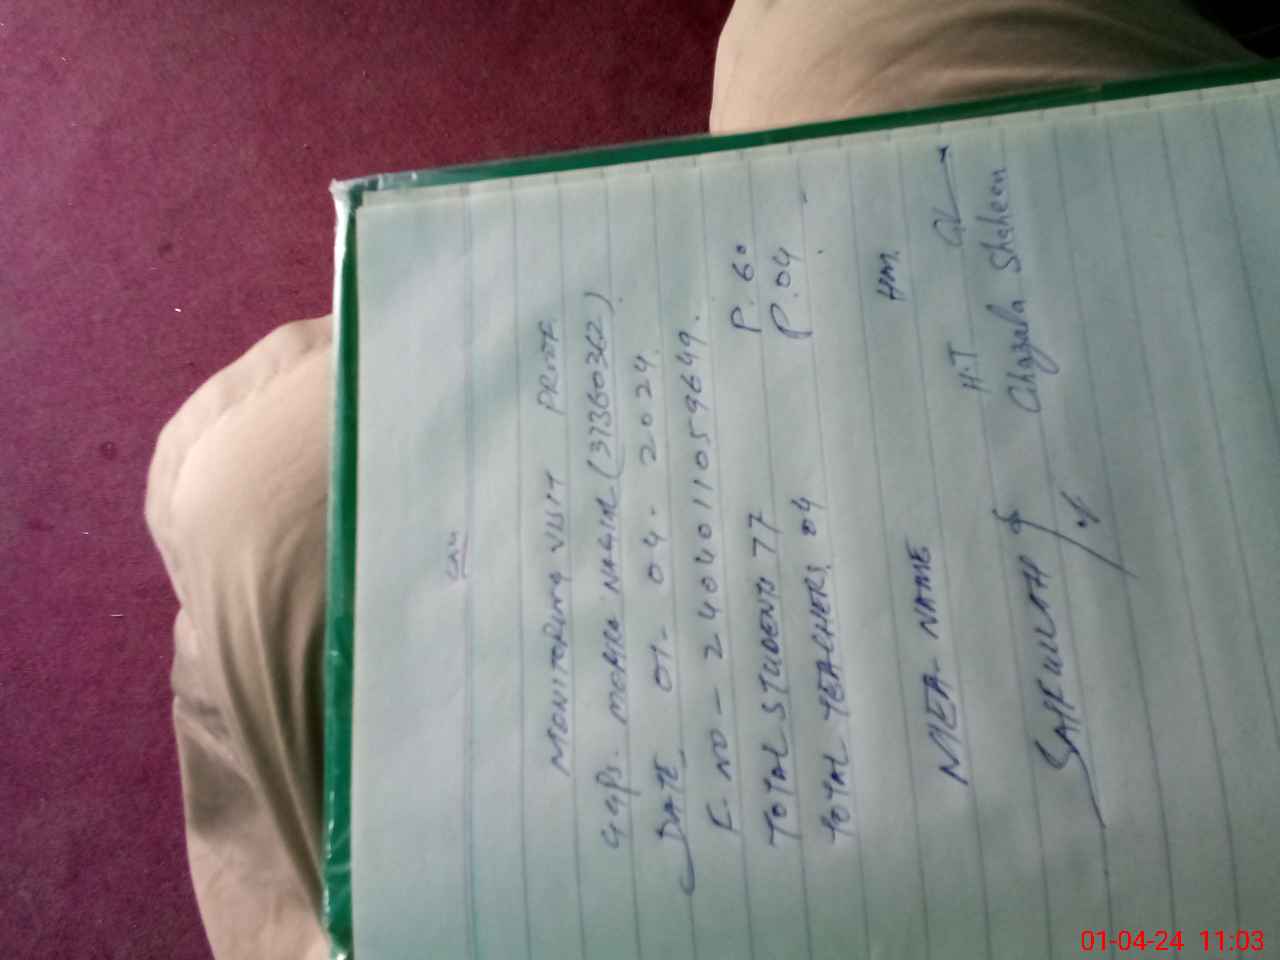 MONITORING VISIT PROOF
GGPS. MOHRA NAGIAL (37360362)
DATE 01-04-2024.
F. NO - 2404011059649.
TOTAL STUDENTS 77 P. 60
TOTAL TEACHERS. 04 P. 04
MEA. NAME HM.
H.T
SAIFULLAH Ghazala Shaheen
01-04-24 11:03